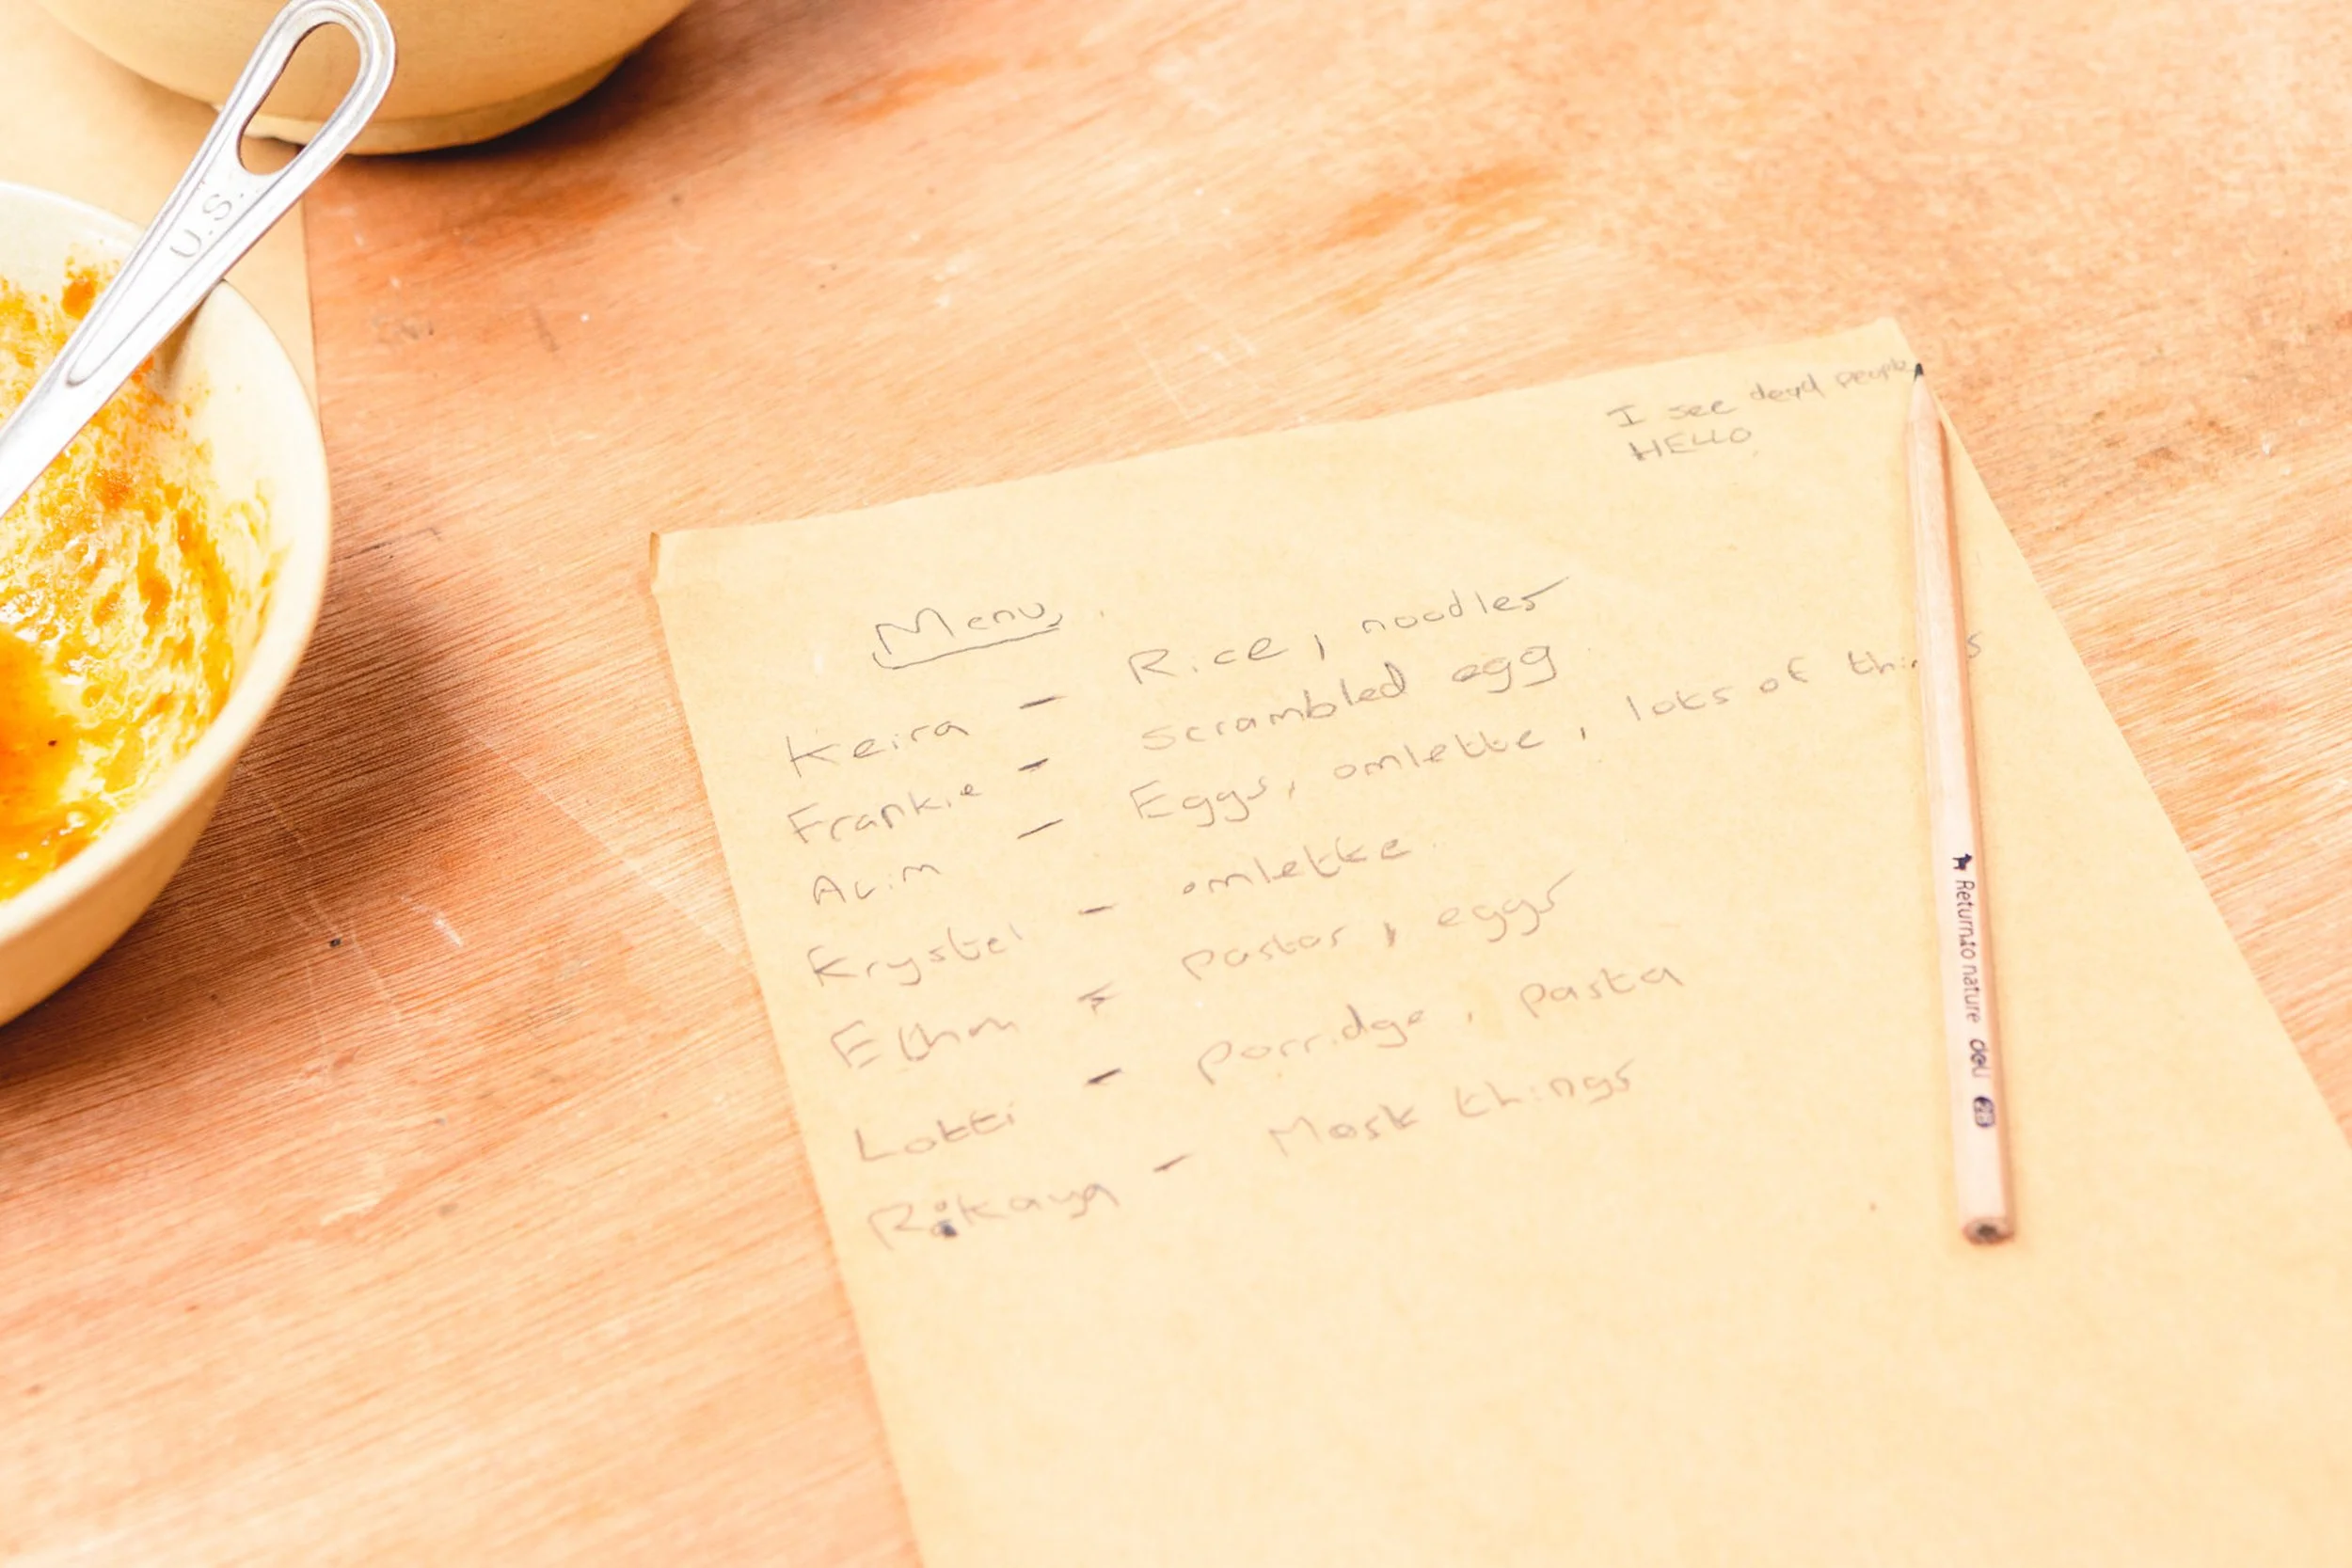 U.S.
I see dead people
HELLO
Menu
Keira - Rice, noodles
Frankie - scrambled egg
Avim - Eggs, omlette, lots of things
Krystel - omlette
- pastar, eggs
Lotti - porridge, pasta
Rokaya - Most things
Return to nature deli 2B